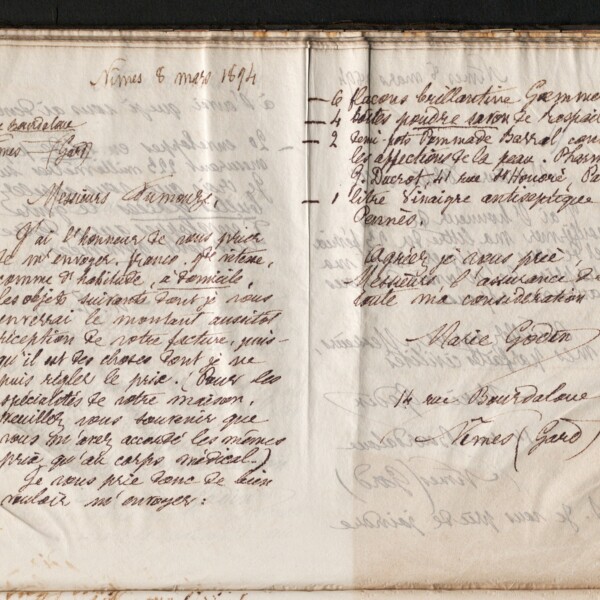 Nîmes 8 mars 1894
rue Bourdaloue
Nîmes (Gard)
Messieurs
J'ai l'honneur de vous prier
de m'envoyer franco,
comme d'habitude, à domicile,
les objets suivants dont je vous
enverrai le montant aussitôt
réception de votre facture, puis-
qu'il est des choses dont je ne
puis régler le prix. (Pour les
spécialités de votre maison,
veuillez vous souvenir que
vous m'avez accordé les mêmes
prix qu'au corps médical.)
Je vous prie donc de bien
vouloir m'envoyer :
— 6 flacons brillantine
— 4 boîtes poudre savon de
— 2 demi-pots Pommade Barral
les affections de la peau. Pharm
P. Ducrot, 41 rue St Honoré, Pa
— 1 litre Vinaigre antiseptique
Pennes.
Agréer je vous prie,
Messieurs l'assurance de
toute ma considération
Marie Godin
14 rue Bourdaloue
Nîmes (Gard)